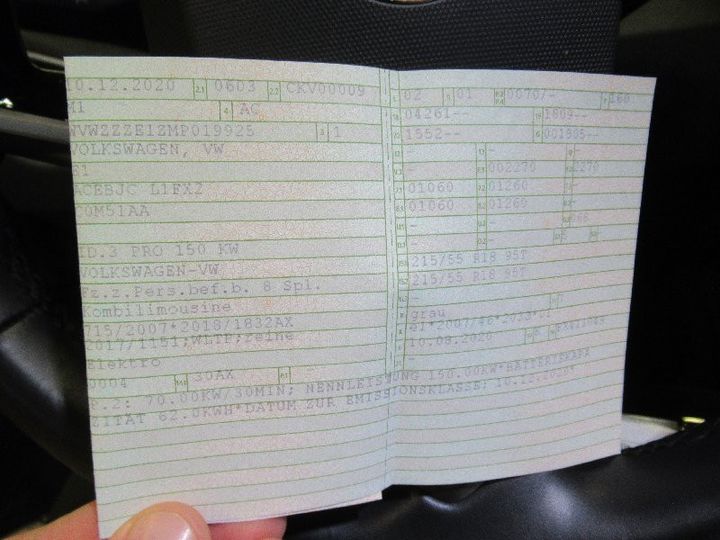 10.12.2020 2.1 0603 2.2 CKV00009
M1 4 AC
WVWZZZE1ZMP019925 3 1
VOLKSWAGEN, VW
E1
ACEBJC L1FX2
C0M51AA
ID.3 PRO 150 KW
VOLKSWAGEN-VW
Fz.z.Pers.bef.b. 8 Spl.
Kombilimousine
715/2007*2018/1832AX
2017/1151;WLTP;reine
Elektro
0004 30AX
T.2: 70.00KW/30MIN; NENNLEISTUNG 150.00KW*BATTERIEKAPA
ZITÄT 62.0KWH*DATUM ZUR EMISSIONSKLASSE: 10.12.2020*
02 01 0070/- 160
04261-- 1809--
1552--
- - -
- 002270 2270
01060 01260 -
01060 01260 -
- - 066
- -
215/55 R18 95T
215/55 R18 95T
-
grau 7
e1*2007/46*
10.08.2020
-